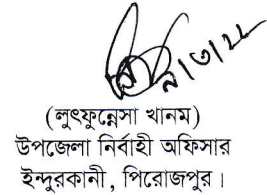 (লুৎফুন্নেসা খানম)
উপজেলা নির্বাহী অফিসার
ইন্দুরকানী, পিরোজপুর।